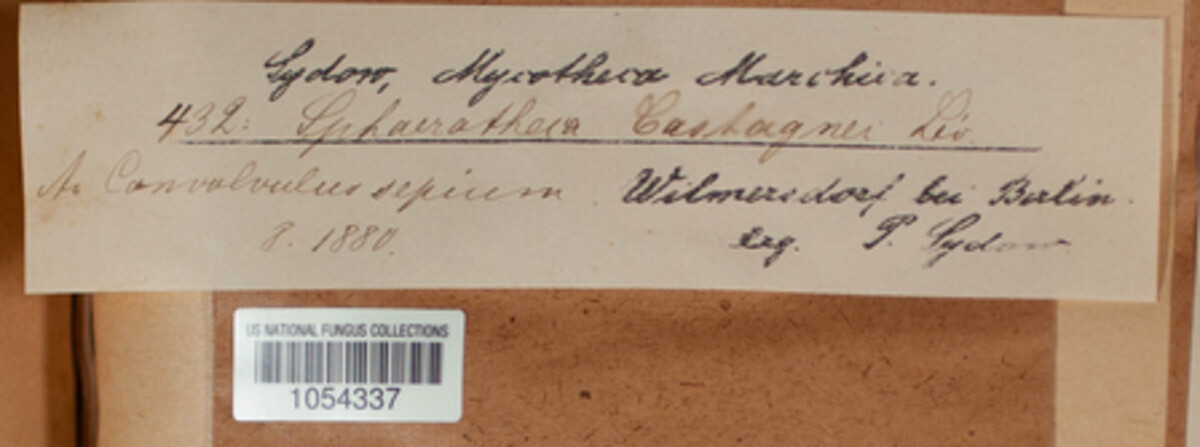 Sydow, Mycotheca Marchica.
432. Sphaerotheca Castagnei Lév.
An Convolvulus sepium. Wilmersdorf bei Berlin.
8. 1880. leg. P. Sydow
US NATIONAL FUNGUS COLLECTIONS
1054337